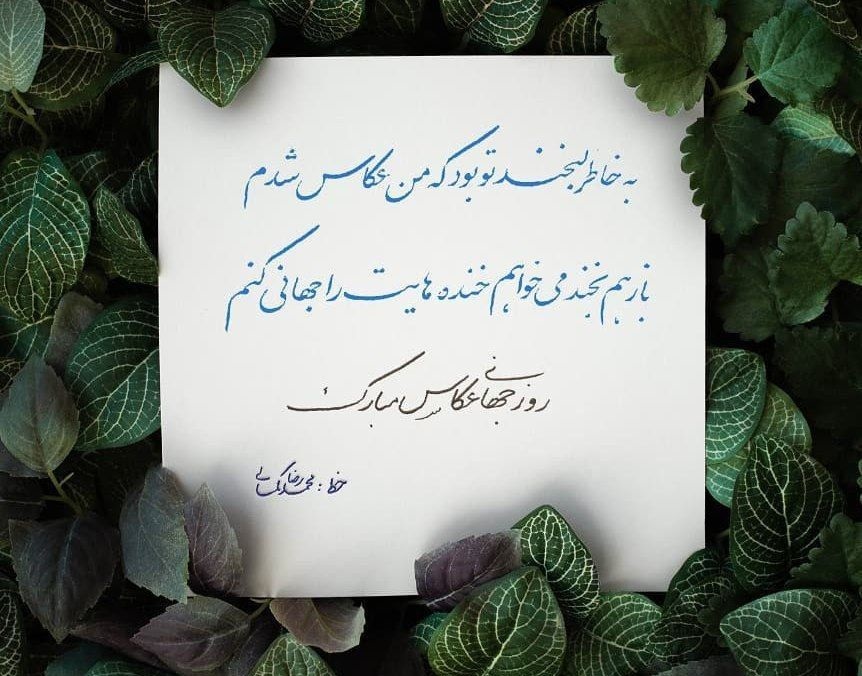 به خاطر لبخند تو بود که من عکاس شدم
باز هم بخند می خواهم خنده هایت را جهانی کنم
روز جهانی عکاس مبارک
خط: محمدرضا کمالی